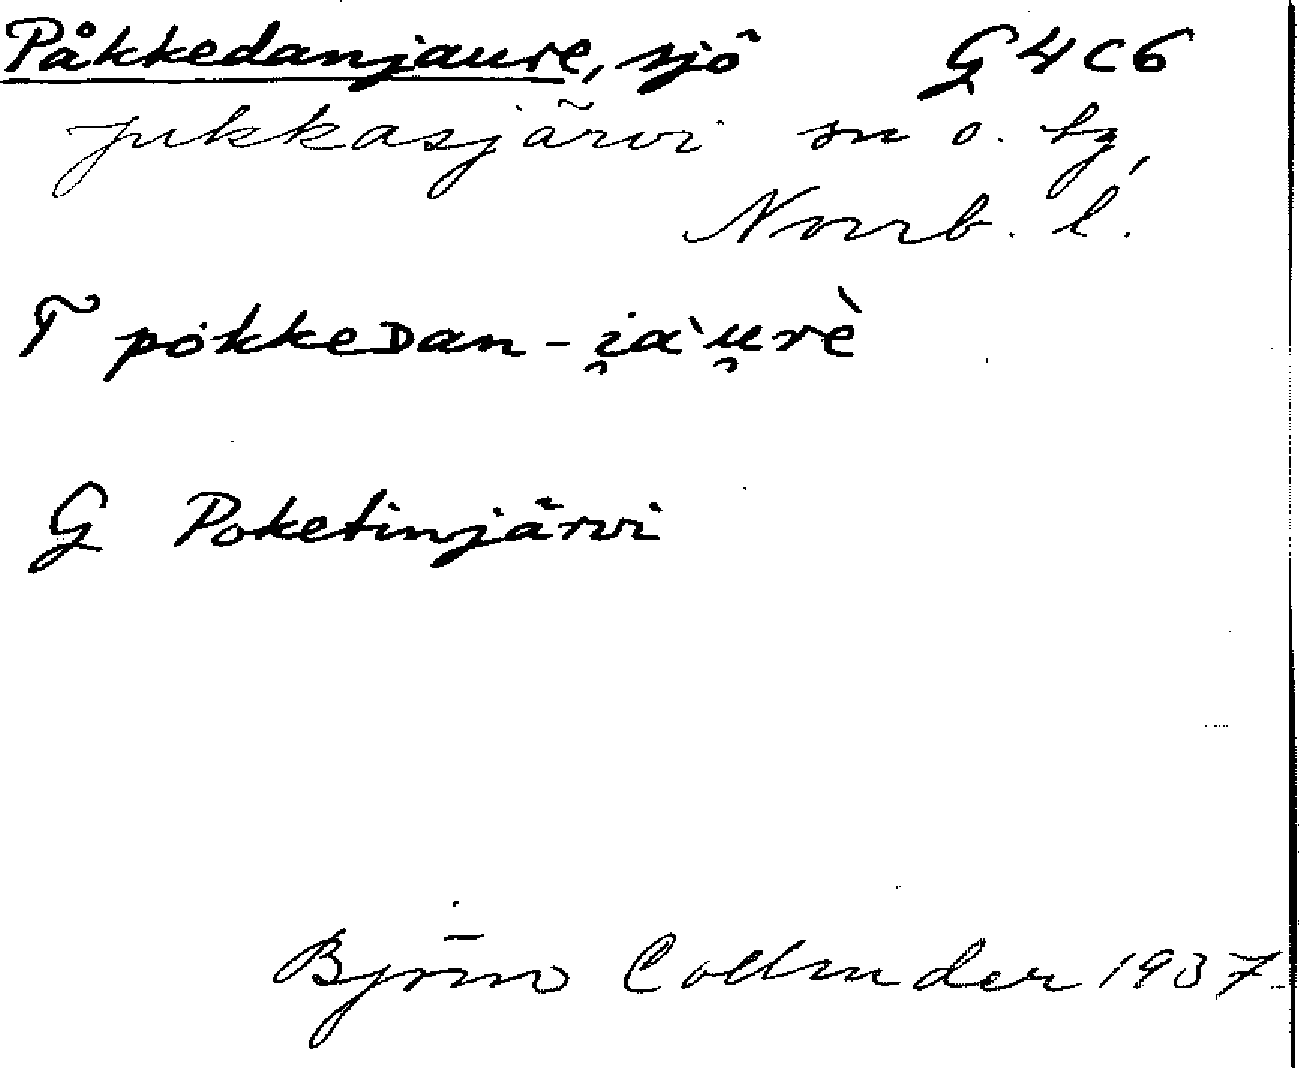 Påkkedanjaure, sjö G4c6
Jukkasjärvi sn o. tg,
Norrb. l.
T pȯkkeDan-i̯a`u̯rè
G Poketinjärvi
Björn Collinder 1937